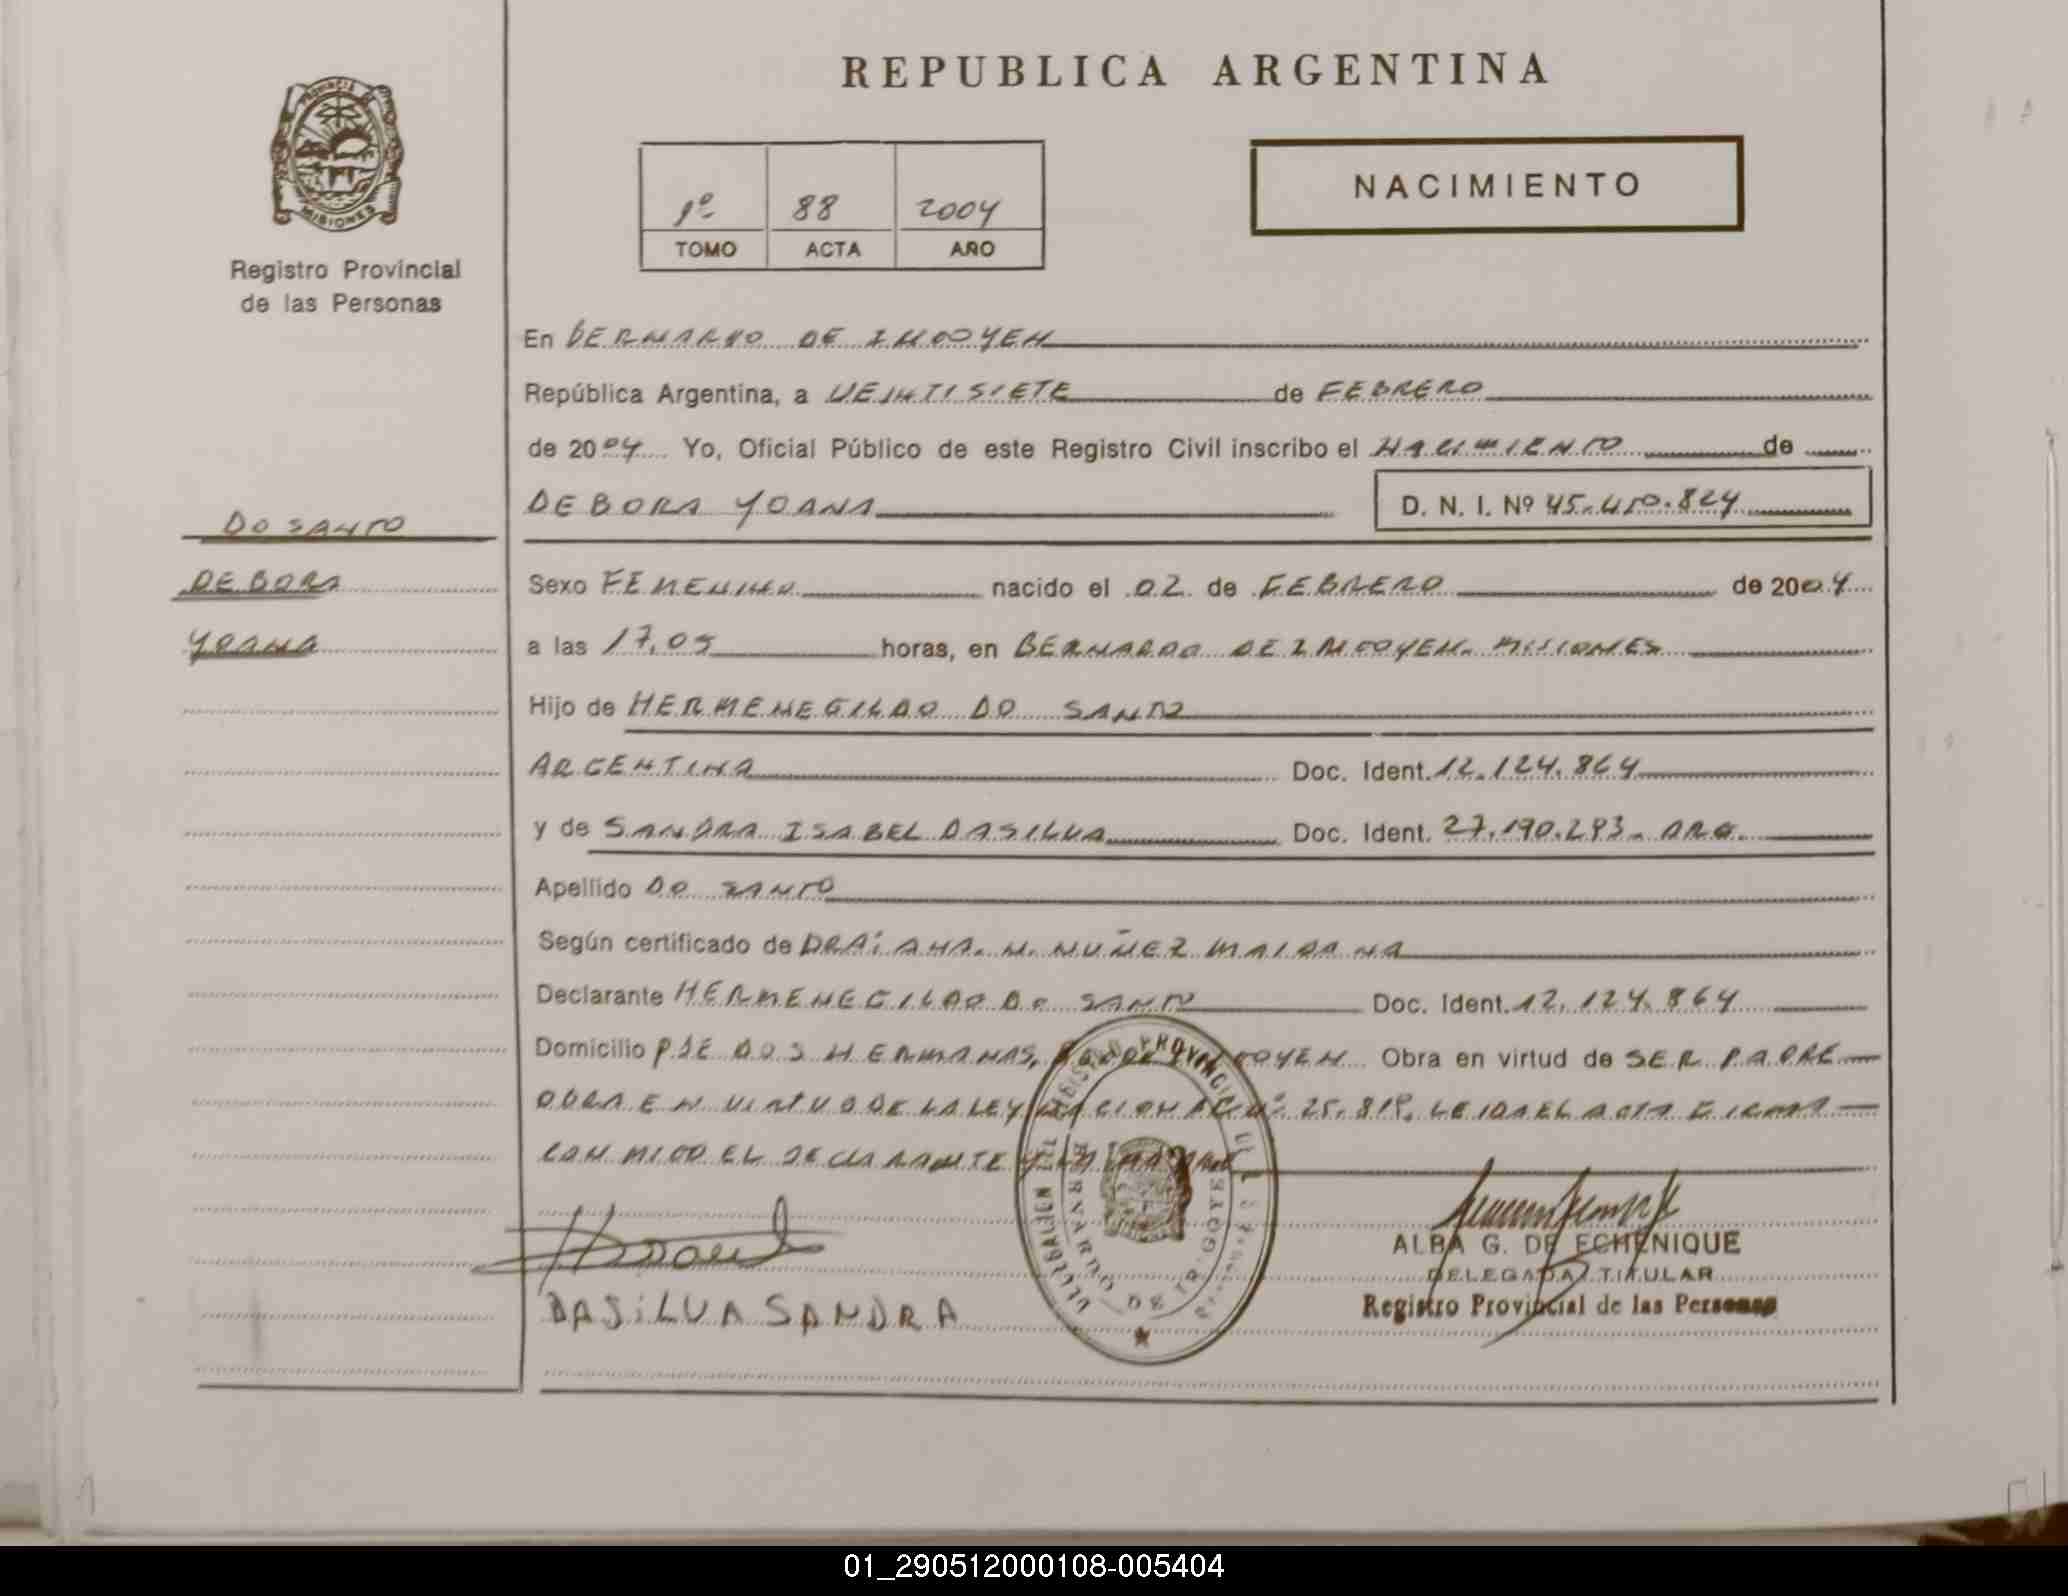 REPUBLICA ARGENTINA
PROVINCIA DE
MISIONES
Registro Provincial
de las Personas
1º 88 2004
TOMO ACTA AÑO
NACIMIENTO
En BERNARDO DE IRIGOYEN
República Argentina, a VEINTISIETE de FEBRERO
de 2004 Yo, Oficial Público de este Registro Civil inscribo el NACIMIENTO de
DEBORA YOANA D. N. I. Nº 45.410.824
DO SANTO
DEBORA
YOANA
Sexo FEMENINO nacido el 02 de FEBRERO de 2004
a las 17,05 horas, en BERNARDO DE IRIGOYEN. MISIONES
Hijo de HERMENEGILDO DO SANTO
ARGENTINA Doc. Ident. 12.124.864
y de SANDRA ISABEL DASILVA Doc. Ident. 27.190.293. ARG.
Apellido DO SANTO
Según certificado de DRA: ANA. N. NUÑEZ MAIDANA
Declarante HERMENEGILDO DO SANTO Doc. Ident. 12.124.864
Domicilio PJE DOS HERMANAS, Obra en virtud de SER PADRE
OBRA EN VIRTUD DE LA LEY NACIONAL Nº 25.819. LEIDA EL ACTA FIRMA
CONMIGO EL DECLARANTE Y LA MADRE
DASiLVA SANDRA
REGISTRO PROVINCIAL DE
DELEGACION
BERNARDO DE IRIGOYEN
ALBA G. DE ECHENIQUE
DELEGADA TITULAR
Registro Provincial de las Personas
01_290512000108-005404